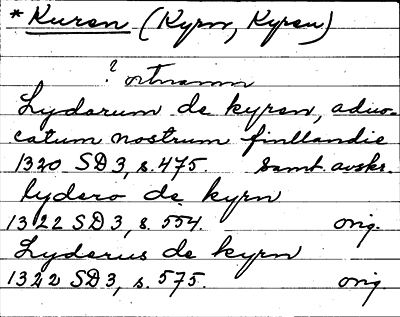 * Kuren (Kyrn, Kyren)
? ortnamn
Lydarum de kyren, advo-
catum nostrum finllandie
1320 SD3, s. 475. samt. avskr.
lydero de kyrn
1322 SD3, s. 554. orig.
Lyderus de kyrn
1322 SD3, s. 575. orig